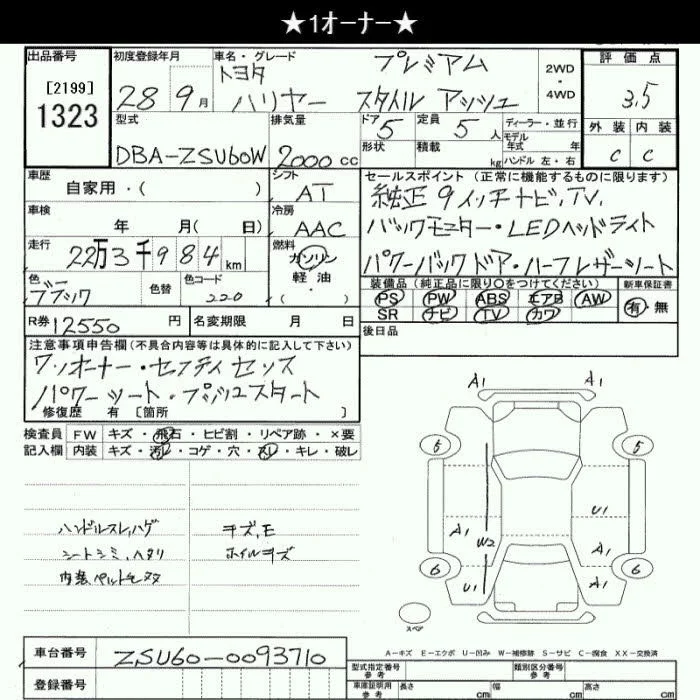 ★1オーナー★
出品番号
[2199]
1323
初度登録年月
28年 9月
車名・グレード
トヨタ
ハリヤー
プレミアム
スタイル アッシュ
2WD
・
4WD
評価点
3.5
外装 内装
C C
型式
DBA-ZSU60W
排気量
2000 cc
ドア 5
定員 5人
ディーラー・並行
形状
積載 kg
モデル年式 年
ハンドル 左・右
車歴
自家用・( )
シフト
AT
セールスポイント(正常に機能するものに限ります)
純正9インチナビ、TV、
バックモニター・LEDヘッドライト
パワーバックドア・ハーフレザーシート
車検
年 月( 日)
冷房
AAC
走行
22万3千984km
燃料
ガソリン
軽油
( ・ )
色
ブラック
色替
色コード
220
装備品(純正品に限り○をつけてください)
新車保証書
PS PW ABS エアB AW
SR ナビ TV カワ
有・無
R券 12550円
名変期限 月 日
後日品
注意事項申告欄(不具合内容等は具体的に記入して下さい)
ワンオーナー・セフティセンス
パワーシート・プッシュスタート
修復歴 有 [箇所 ]
検査員
記入欄
FW キズ・飛石・ヒビ割・リペア跡・×要
内装 キズ・汚レ・コゲ・穴・スレ・キレ・破レ
ハンドルスレ,ハゲ
シートシミ,ヘタリ
キズ,E
ホイルキズ
A1 A1
5 5
A1 W2 U1
U1 A1 A1
6 6
スペア
A-キズ E-エクボ U-凹み W-補修跡 S-サビ C-腐食 XX-交換済
車台番号
ZSU60-0093710
登録番号
型式指定番号
参考
類別区分番号
参考
車庫証明用
参考
長さ cm 幅 cm 高さ cm